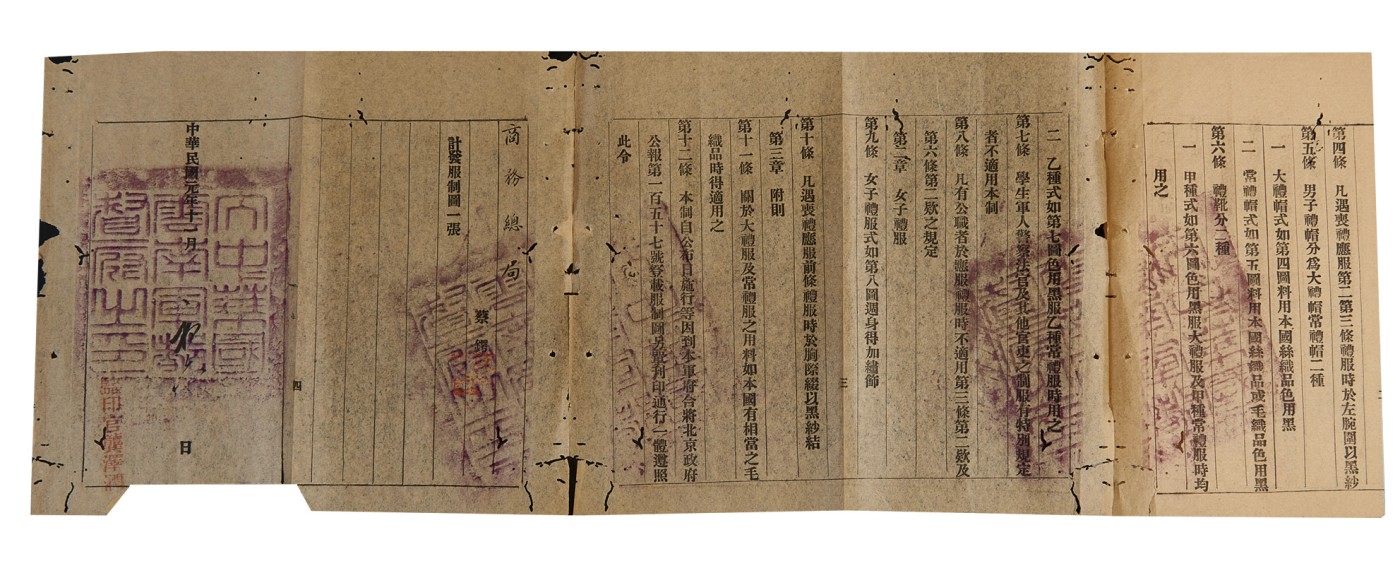 第四條　凡遇喪禮應服第二第三條禮服時於左腕圍以黑紗
第五條　男子禮帽分爲大禮帽常禮帽二種
一　大禮帽式如第四圖料用本國絲織品色用黑
二　常禮帽式如第五圖料用本國絲織品或毛織品色用黑
第六條　禮靴分二種
一　甲種式如第六圖色用黑服大禮服及甲種常禮服時均
用之
二　乙種式如第七圖色用黑服乙種常禮服時用之
第七條　學生軍人警察法官及其他官吏之制服有特別規定
者不適用本制
第八條　凡有公職者於應服禮服時不適用第三條第二欵及
第六條第二欵之規定
第二章　女子禮服
第九條　女子禮服式如第八圖週身得加繡飾
第十條　凡遇喪禮應服前條禮服時於胸際綴以黑紗結
第三章　附則
第十一條　關於大禮服及常禮服之用料如本國有相當之毛
織品時得適用之
第十二條　本制自公布日施行等因到本軍府合將北京政府
公報第一百五十七號登載服制圖另單刋印通行一體遵照
此令
三
商務總局
蔡鍔
計發服制圖一張
四
中華民國元年十二月
日
大中華國
雲南軍都
督府之印